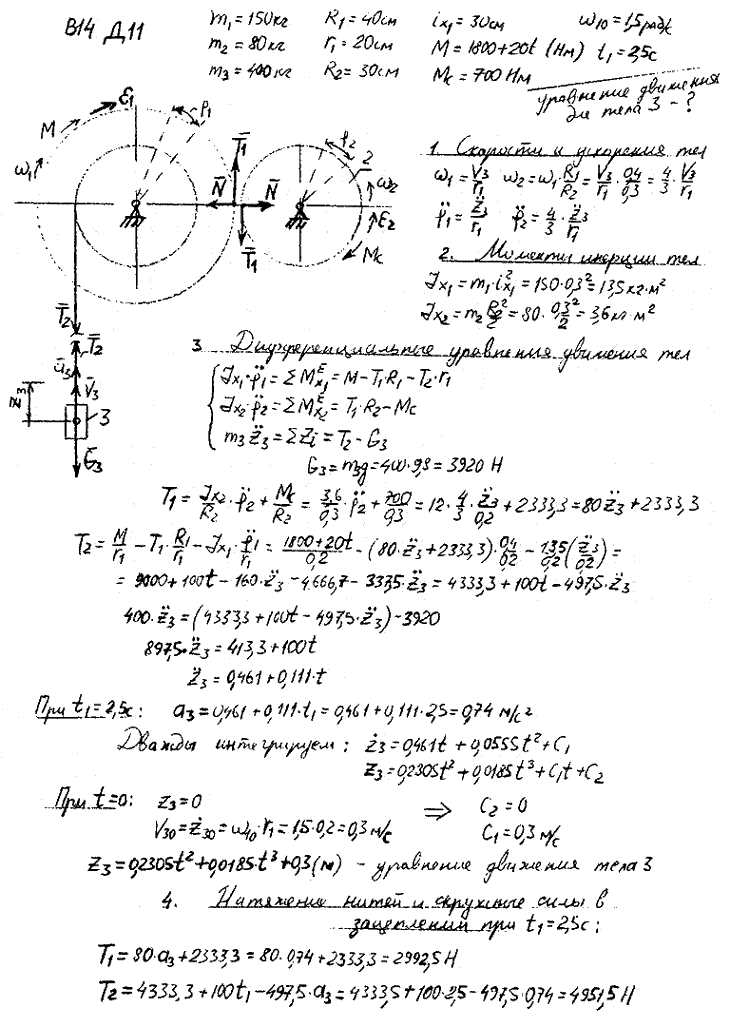 В14 Д11
m₁ = 150кг R₁ = 40см ix₁ = 30см ω₁₀ = 1,5рад/с
m₂ = 80кг r₁ = 20см M = 1800+20t (Нм) t₁ = 2,5с
m₃ = 400кг R₂ = 30см Mс = 700 Нм
уравнение движения
для тела 3 - ?
M ε̄₁ φ₁ ω₁ T̄₁ N̄ N̄ T̄₁ φ₂ 2 ω₂ ε̄₂ Mс
T̄₂ T̄₂ ā₃ V̄₃ Z₃ 3 Ḡ₃
1. Скорости и ускорения тел
ω₁ = V₃/r₁ ω₂ = ω₁·R₁/R₂ = V₃/r₁·0,4/0,3 = 4/3·V₃/r₁
φ̈₁ = z̈₃/r₁ φ̈₂ = 4/3·z̈₃/r₁
2. Моменты инерции тел
Jx₁ = m₁·i²x₁ = 150·0,3² = 13,5кг·м²
Jx₂ = m₂R₂²/2 = 80·0,3²/2 = 3,6кг·м²
3 Дифференциальные уравнения движения тел
Jx₁·φ̈₁ = ΣMᴱx₁ = M - T₁·R₁ - T₂·r₁
Jx₂·φ̈₂ = ΣMᴱx₂ = T₁·R₂ - Mс
m₃z̈₃ = ΣZi = T₂ - G₃
G₃ = m₃g = 400·9,8 = 3920 Н
T₁ = Jx₂/R₂·φ̈₂ + Mс/R₂ = 3,6/0,3·φ̈₂ + 700/0,3 = 12·4/3·z̈₃/0,2 + 2333,3 = 80z̈₃ + 2333,3
T₂ = M/r₁ - T₁·R₁/r₁ - Jx₁·φ̈₁/r₁ = 1800+20t/0,2 - (80·z̈₃ + 2333,3)·0,4/0,2 - 13,5/0,2(z̈₃/0,2) =
= 9000 + 100t - 160·z̈₃ - 4666,7 - 337,5·z̈₃ = 4333,3 + 100t - 497,5·z̈₃
400·z̈₃ = (4333,3 + 100t - 497,5·z̈₃) - 3920
897,5·z̈₃ = 413,3 + 100t
z̈₃ = 0,461 + 0,111·t
При t₁ = 2,5с: a₃ = 0,461 + 0,111·t₁ = 0,461 + 0,111·2,5 = 0,74 м/с²
Дважды интегрируем: ż₃ = 0,461t + 0,0555t² + C₁
z₃ = 0,2305t² + 0,0185t³ + C₁t + C₂
При t=0: z₃ = 0 ⇒ C₂ = 0
V₃₀ = ż₃₀ = ω₁₀·r₁ = 1,5·0,2 = 0,3 м/с C₁ = 0,3 м/с
z₃ = 0,2305t² + 0,0185t³ + 0,3 (м) - уравнение движения тела 3
4. Натяжение нитей и окружные силы в
зацеплений при t₁ = 2,5с:
T₁ = 80·a₃ + 2333,3 = 80·0,74 + 2333,3 = 2992,5 Н
T₂ = 4333,3 + 100t₁ - 497,5·a₃ = 4333,5 + 100·2,5 - 497,5·0,74 = 4951,5 Н